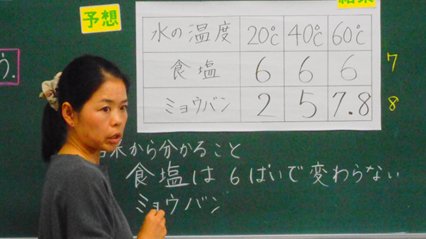 予想
水の温度 20℃ 40℃ 60℃
食塩 6 6 6 7
ミョウバン 2 5 7.8 8
から分かること
食塩は6ぱいで変わらない
ミョウバン
う.